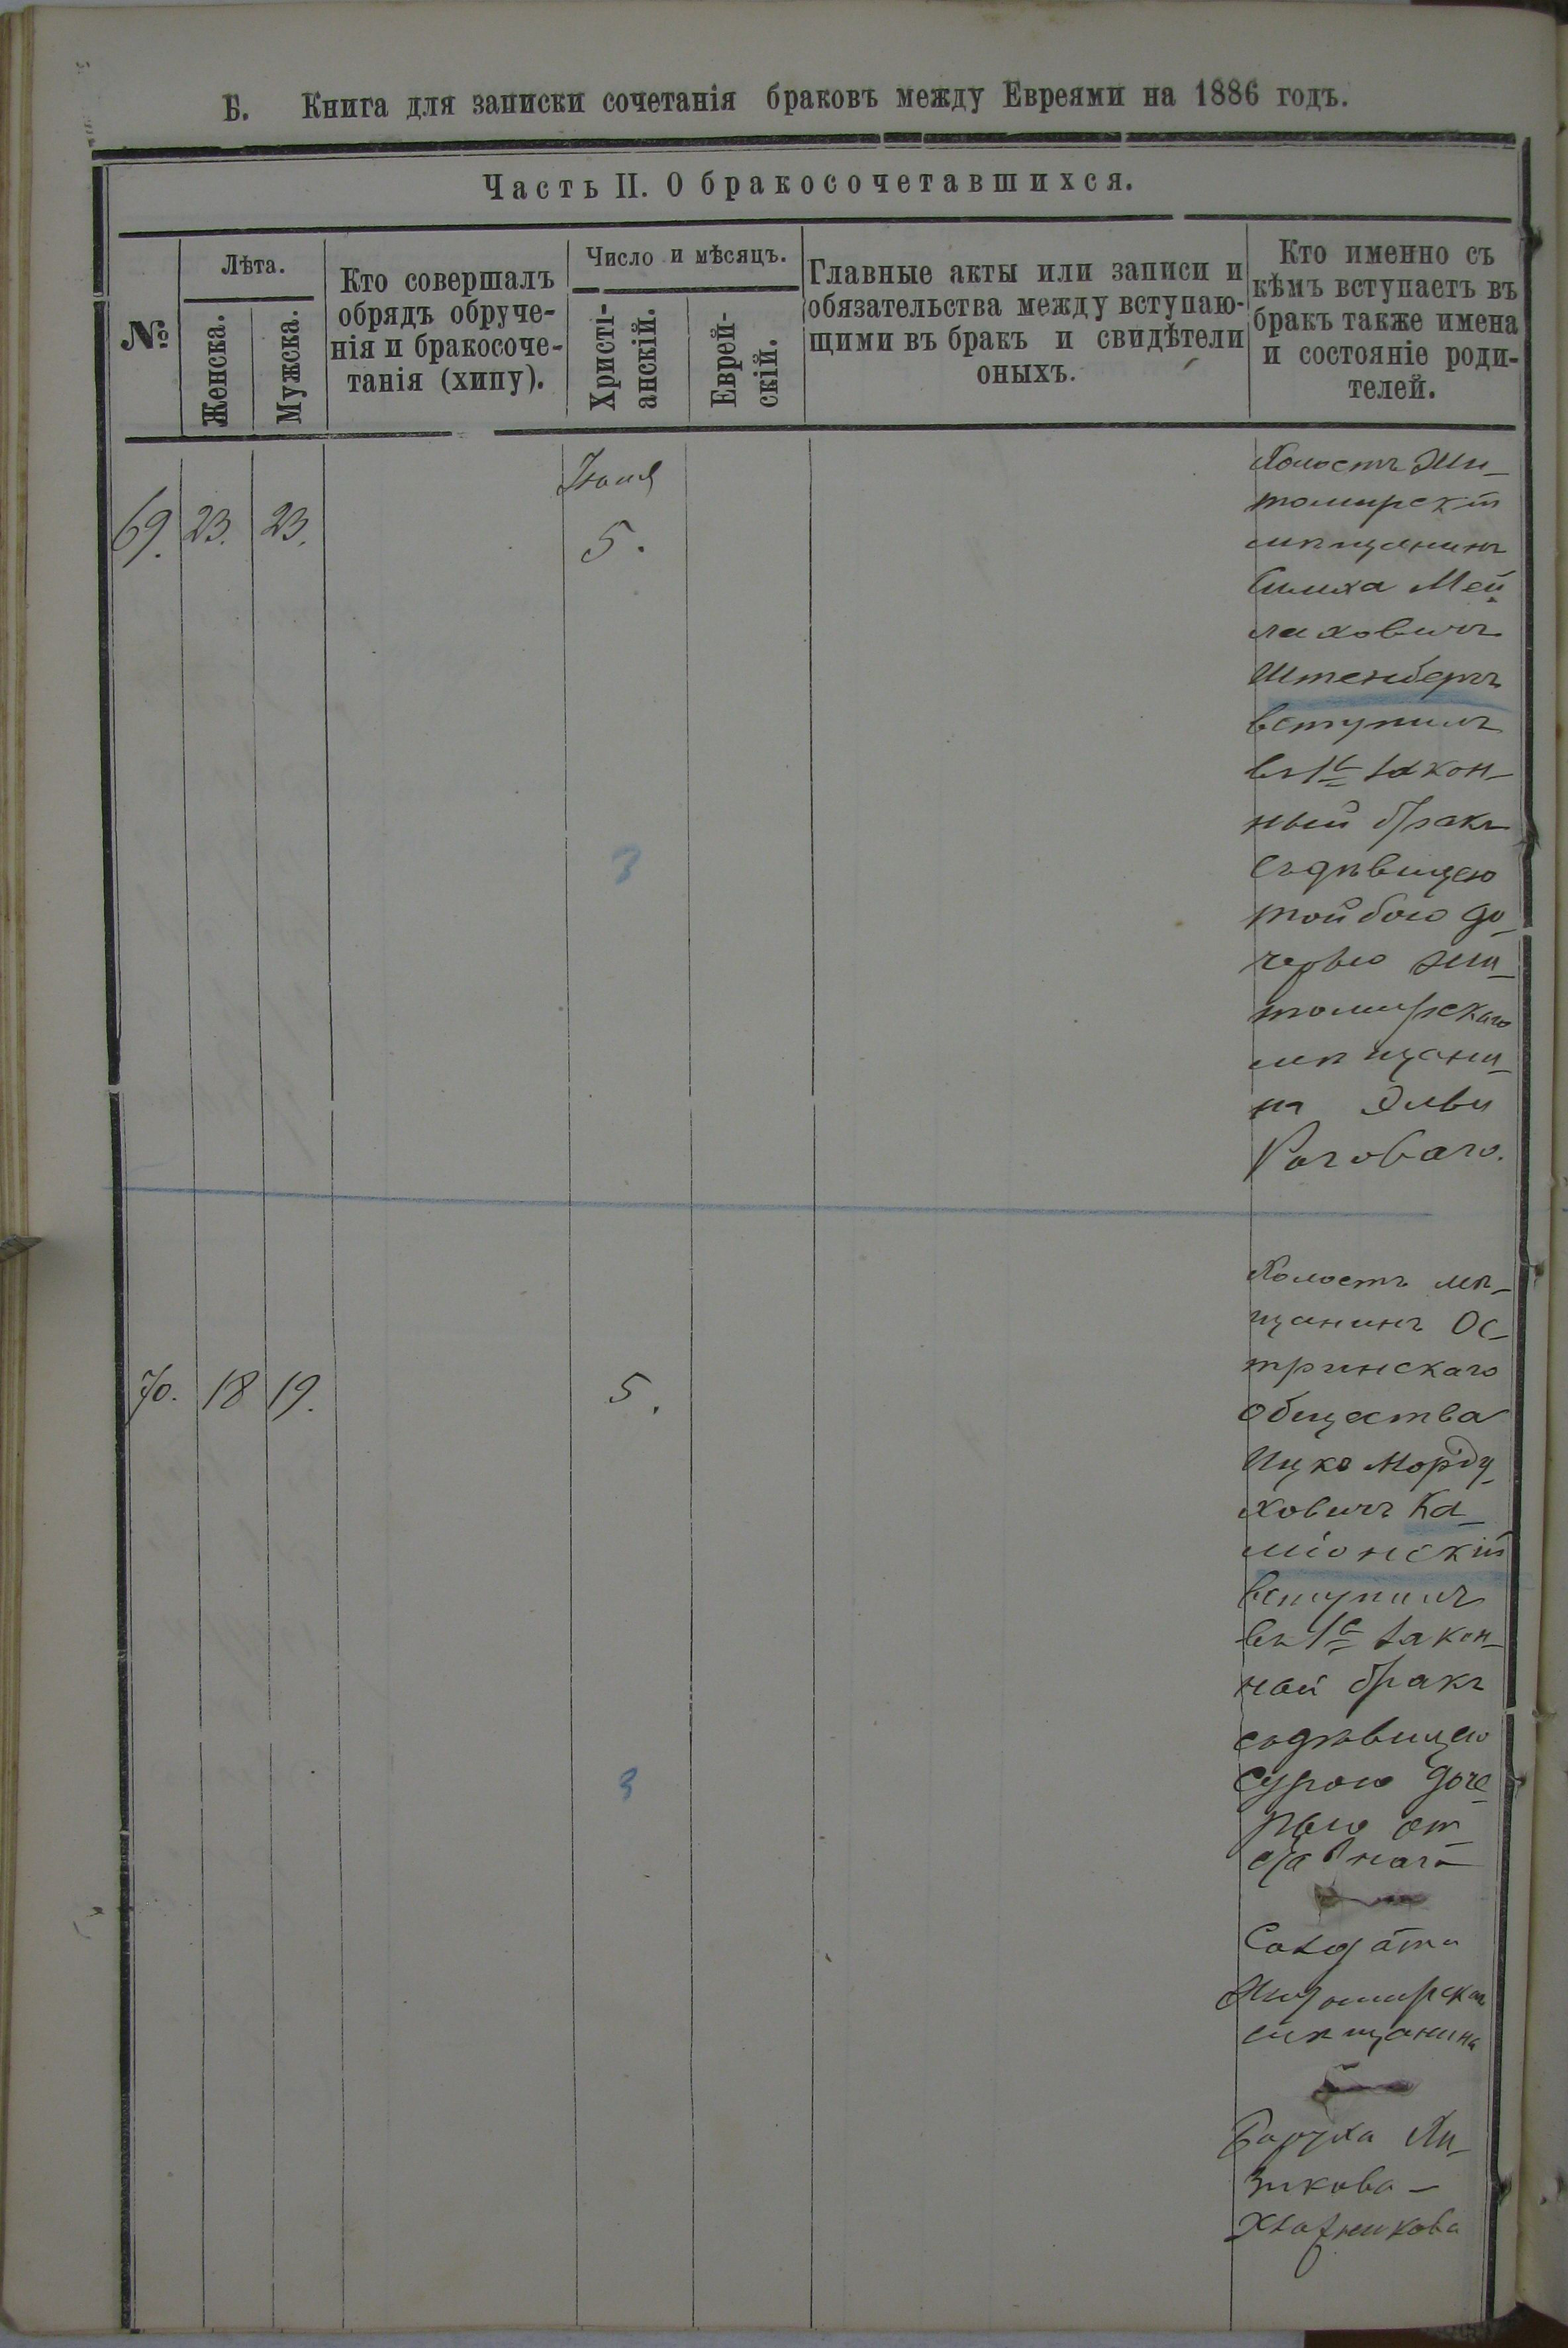 Б. Книга для записки сочетанія браковъ между Евреями на 1886 годъ.
Часть II. О бракосочетавшихся.
№
Лѣта.
Женска.
Мужска.
Кто совершалъ
обрядъ обруче-
нія и бракосоче-
танія (хипу).
Число и мѣсяцъ.
Христі-
анскій.
Еврей-
скій.
Главные акты или записи и
обязательства между вступаю-
щими въ бракъ и свидѣтели
оныхъ.
Кто именно съ
кѣмъ вступаетъ въ
бракъ также имена
и состояніе роди-
телей.
69. 23. 23.
Іюня
5.
3
Холостъ Жи-
томирскій
мѣщанинъ
Симха Мей
лаховичъ
Штенбергъ
вступилъ
въ 1й закон-
ный бракъ
съ дѣвицею
Тойбою до-
черью Жи-
томирскаго
мѣщани-
на Эльи
Роговаго.
70. 18 19.
5.
3
Холостъ мѣ-
щанинъ Ос-
тринскаго
общества
Ицко Морду
ховичъ Ка-
міонскій
вступилъ
въ 1й закон-
ной бракъ
съ дѣвицею
Сурою доче-
рью от-
ставнаго
Солдата
Житомирскаго
мѣщанина
Баруха